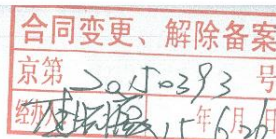 合同变更、解除备案
京第 20150393 号
经办人 15 年 6 月 26 日